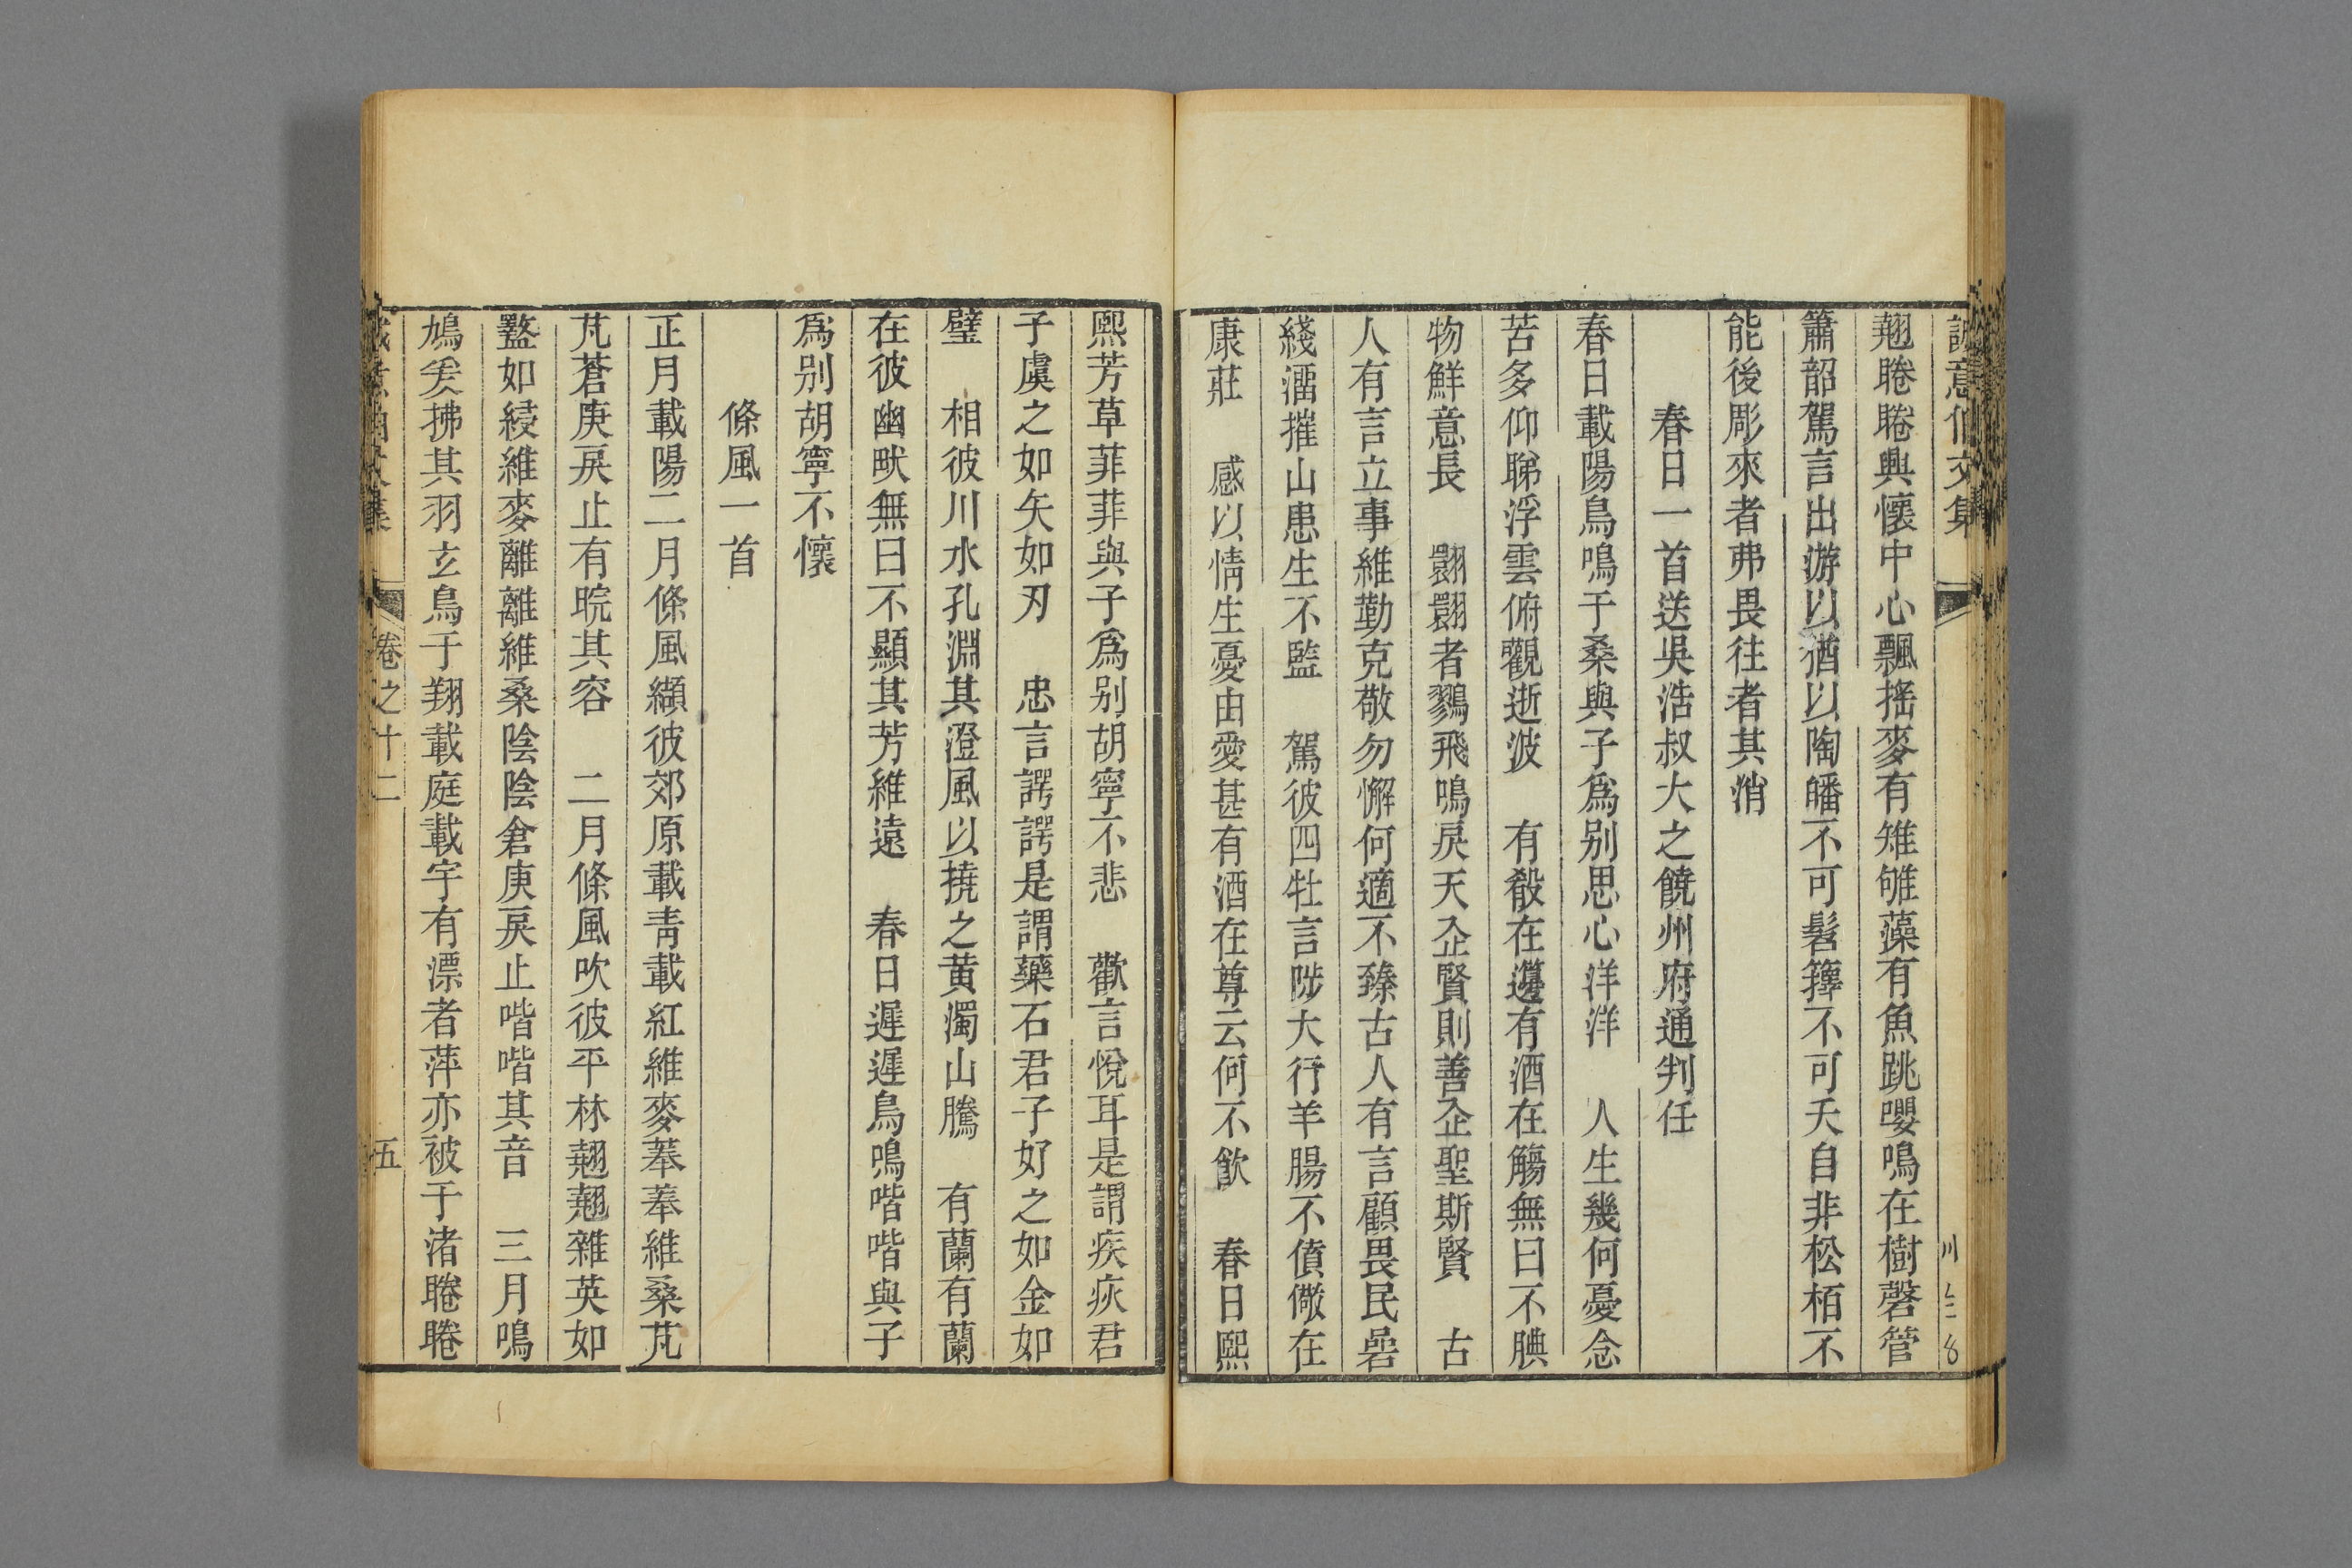 誠意伯文集
翹睠睠興懷中心飄摇麥有雉雊藻有魚跳嚶鳴在樹磬管
簫韶駕言出游以猶以陶皤不可髫籜不可夭自非松栢不
能後彫來者弗畏往者其消
春日一首送吳浩叔大之饒州府通判任
春日載陽鳥鳴于桑與子爲别思心洋洋　人生幾何憂念
苦多仰睇浮雲俯觀逝波　有殽在籩有酒在觴無曰不腆
物鮮意長　翾翾者鷚飛鳴戾天企賢則善企聖斯賢　古
人有言立事維勤克敬勿懈何適不臻古人有言顧畏民碞
綫溜摧山患生不監　駕彼四牡言陟大行羊腸不僨儆在
康莊　感以情生憂由愛甚有酒在尊云何不飲　春日熙
熙芳草菲菲與子爲别胡寧不悲　歡言悅耳是謂疾疢君
子虞之如矢如刃　忠言諤諤是謂藥石君子好之如金如
璧　相彼川水孔淵其澄風以撓之黄濁山騰　有蘭有蘭
在彼幽畎無曰不顯其芳維遠　春日遲遲鳥鳴喈喈與子
爲别胡寧不懷
條風一首
正月載陽二月條風纈彼郊原載青載紅維麥菶菶維桑芃
芃蒼庚戾止有睆其容　二月條風吹彼平林翹翹雜英如
盭如綅維麥離離維桑陰陰倉庚戾止喈喈其音　三月鳴
鳩爰拂其羽玄鳥于翔載庭載宇有漂者萍亦被于渚睠睠
卷之十二
五